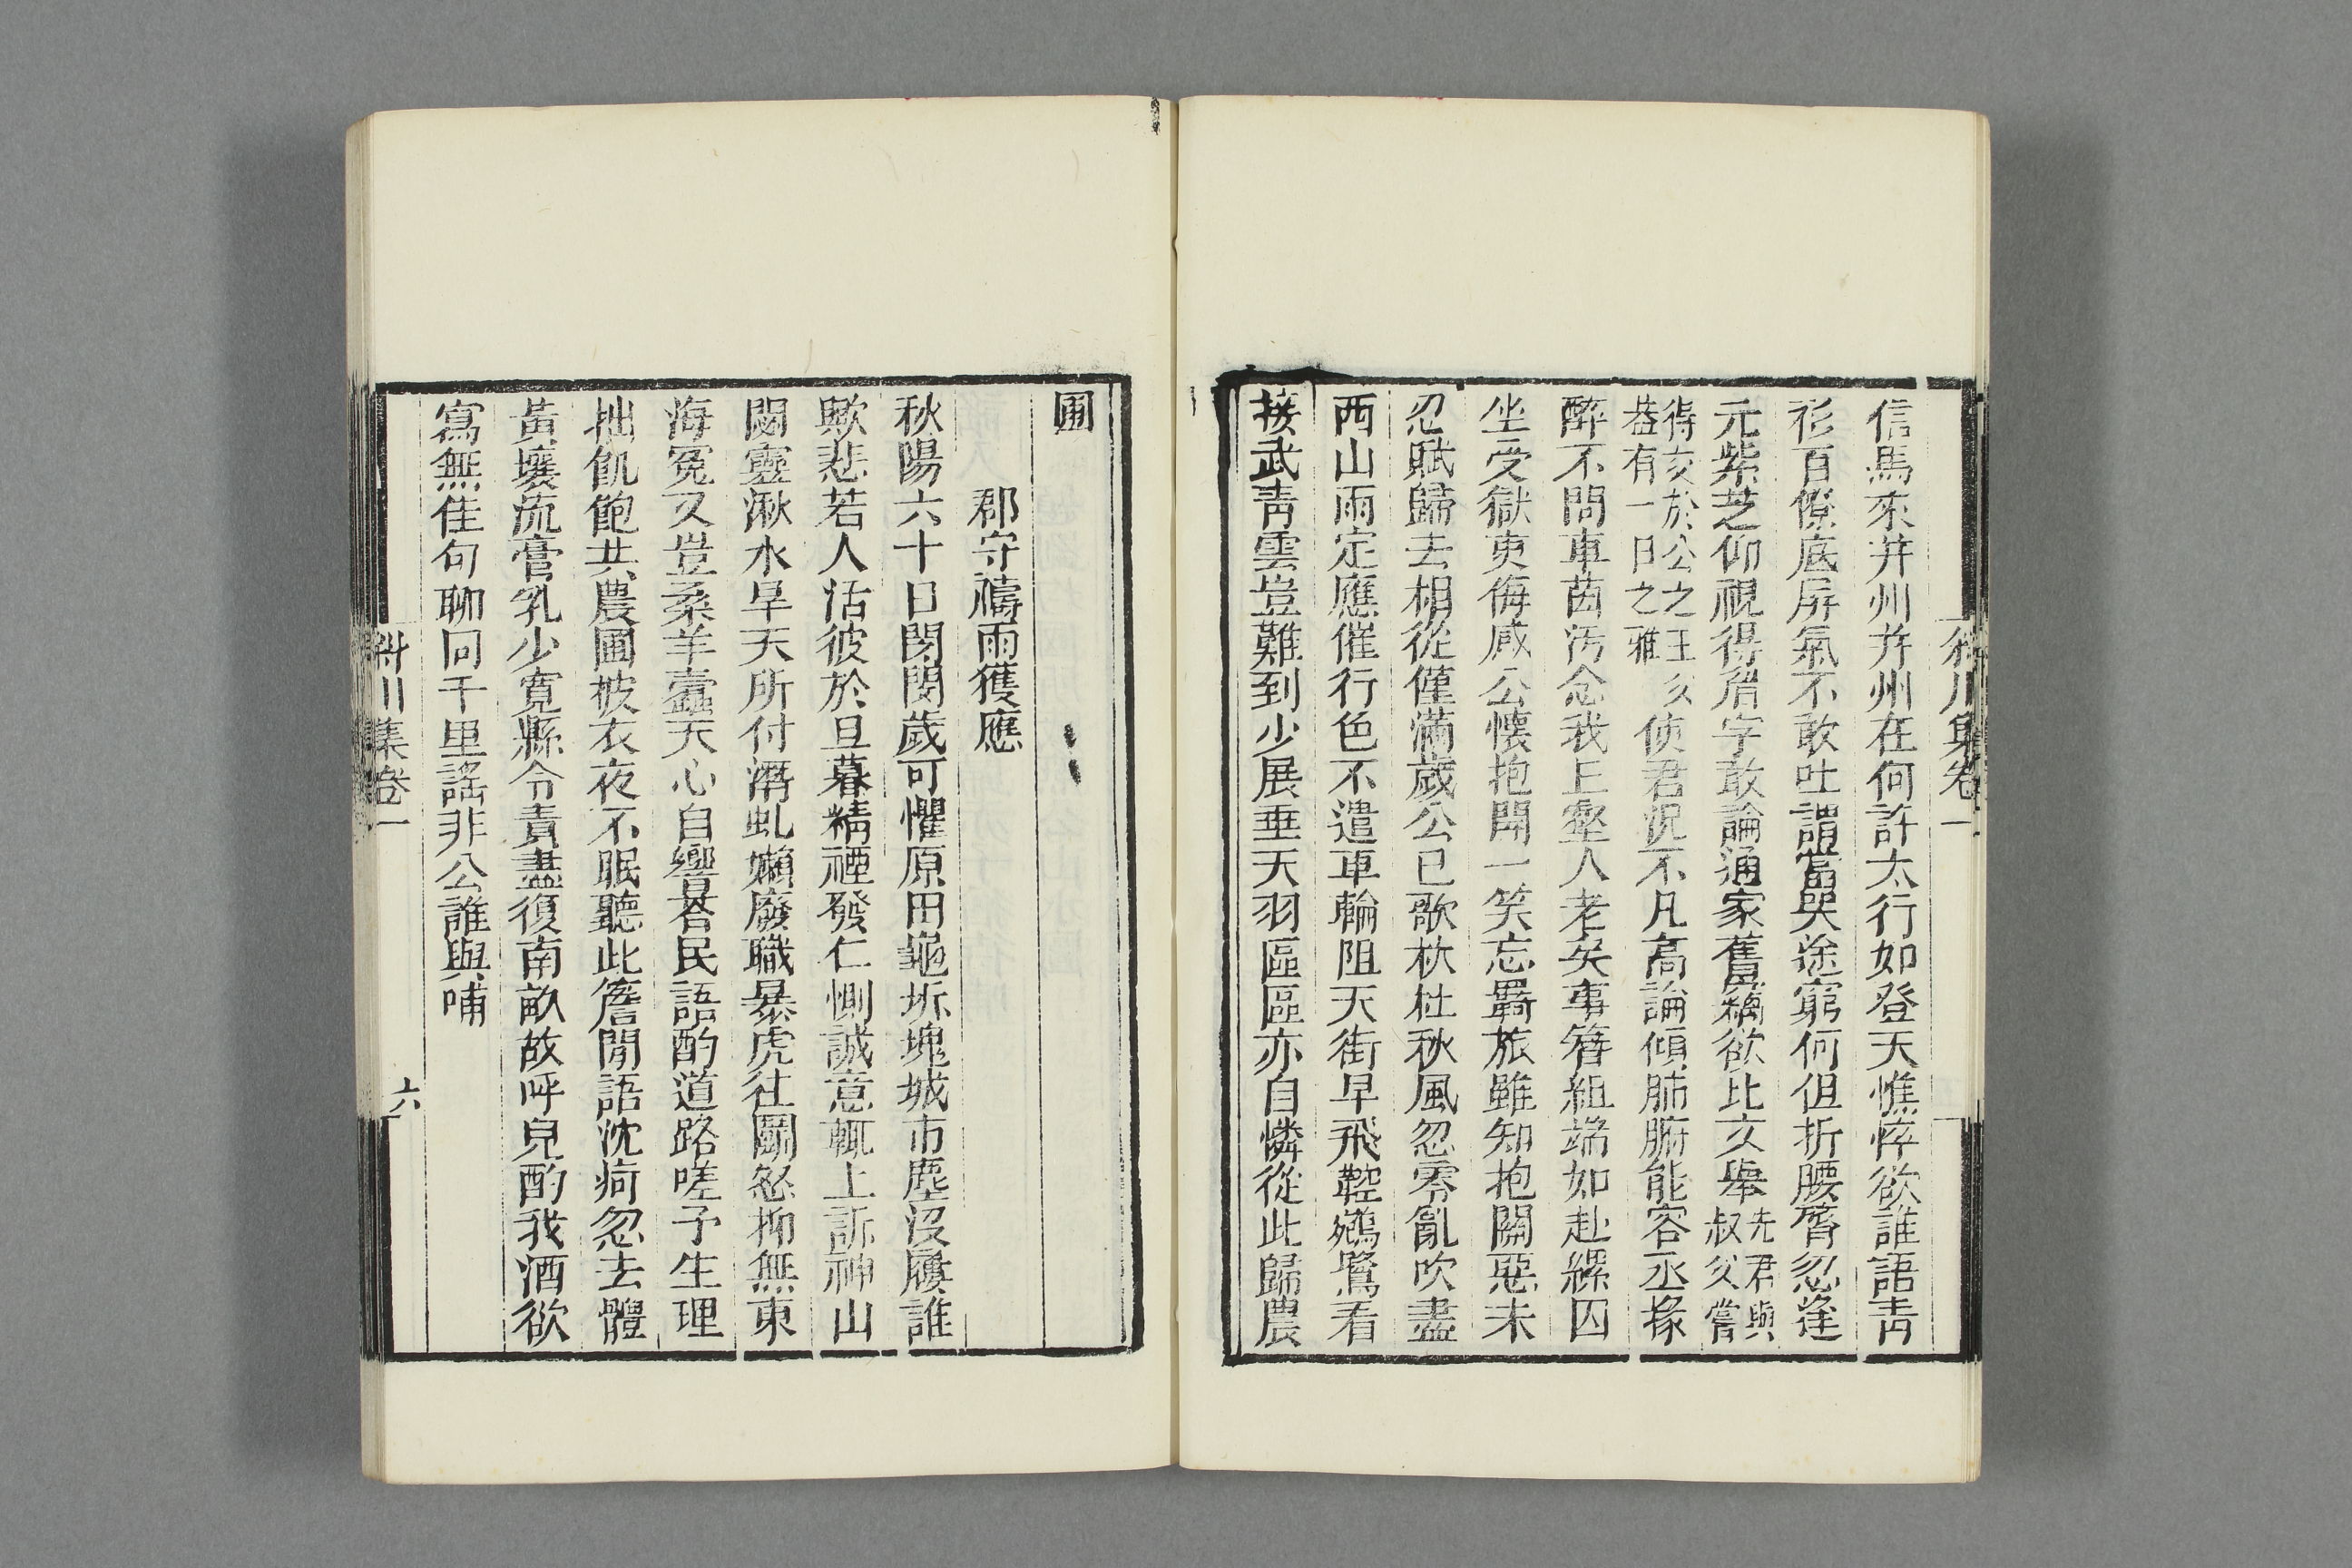 信馬來并州并州在何許太行如登天憔悴欲誰語靑
衫百僚底屏氣不敢吐謂當哭途窮何但折腰膂忽逢
元紫芝仰視得眉宇敢論通家舊輒欲比文舉先君與叔父嘗
得友於公之王父葢有一日之雅使君況不凡高論傾肺腑能容丞掾
醉不問車茵汚念我丘壑人老矣事簪組端如赴縲囚
坐受獄吏侮感公懷抱開一笑忘羇旅雖知抱關惡未
忍賦歸去相從僅滿歲公已歌杕杜秋風忽零亂吹盡
西山雨定應催行色不遣車輪阻天街早飛鞚鵷鷺看
接武靑雲豈難到少展垂天羽區區亦自憐從此歸農
圃
郡守禱雨獲應
秋陽六十日閔閔歲可懼原田龜坼塊城市塵沒屨誰
歟悲若人活彼於旦暮精禋發仁惻誠意輒上訴神山
閟靈湫水旱天所付潛虬嬾廢職暴虎往鬬怒抑無東
海冤又豈桑羊蠹天心自響荅民語酌道路嗟予生理
拙飢飽共農圃披衣夜不眠聽此簷間語沈痾忽去體
黃壤流膏乳少寬縣令責盡復南畝故呼兒酌我酒欲
寫無佳句聊同千里謠非公誰與哺
集卷一
六